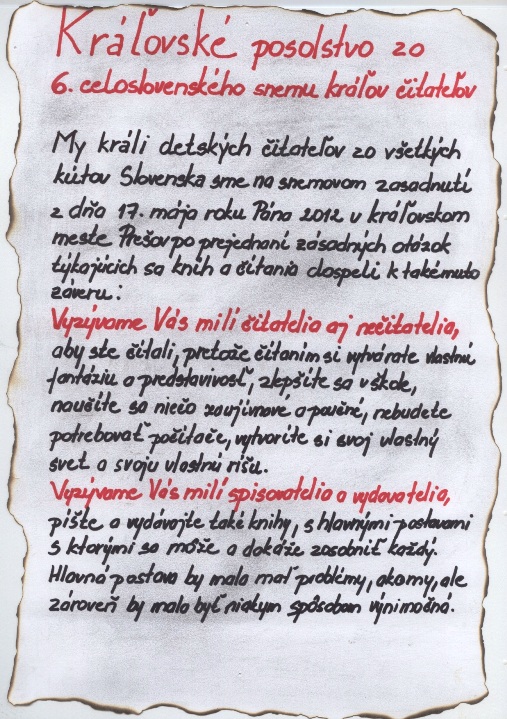 Kráľovské posolstvo zo
6. celoslovenského snemu kráľov čitateľov
My králi detských čitateľov zo všetkých
kútov Slovenska sme na snemovom zasadnutí
z dňa 17. mája roku Pána 2012 v kráľovskom
meste Prešov po prejednaní zásadných otázok
týkajúcich sa kníh a čítania dospeli k takémuto
záveru:
Vyzývame Vás milí čitatelia aj nečitatelia,
aby ste čítali, pretože čítaním si vytvárate vlastnú
fantáziu a predstavivosť, zlepšíte sa v škole,
naučíte sa niečo zaujímavé a poučné, nebudete
potrebovať počítače, vytvoríte si svoj vlastný
svet a svoju vlastnú ríšu.
Vyzývame Vás milí spisovatelia a vydavatelia,
píšte a vydávajte také knihy, s hlavnými postavami
s ktorými sa môže a dokáže zosobniť každý.
Hlavná postava by mala mať problémy, ako my, ale
zároveň by mala byť niekym spôsobom výnimočná.